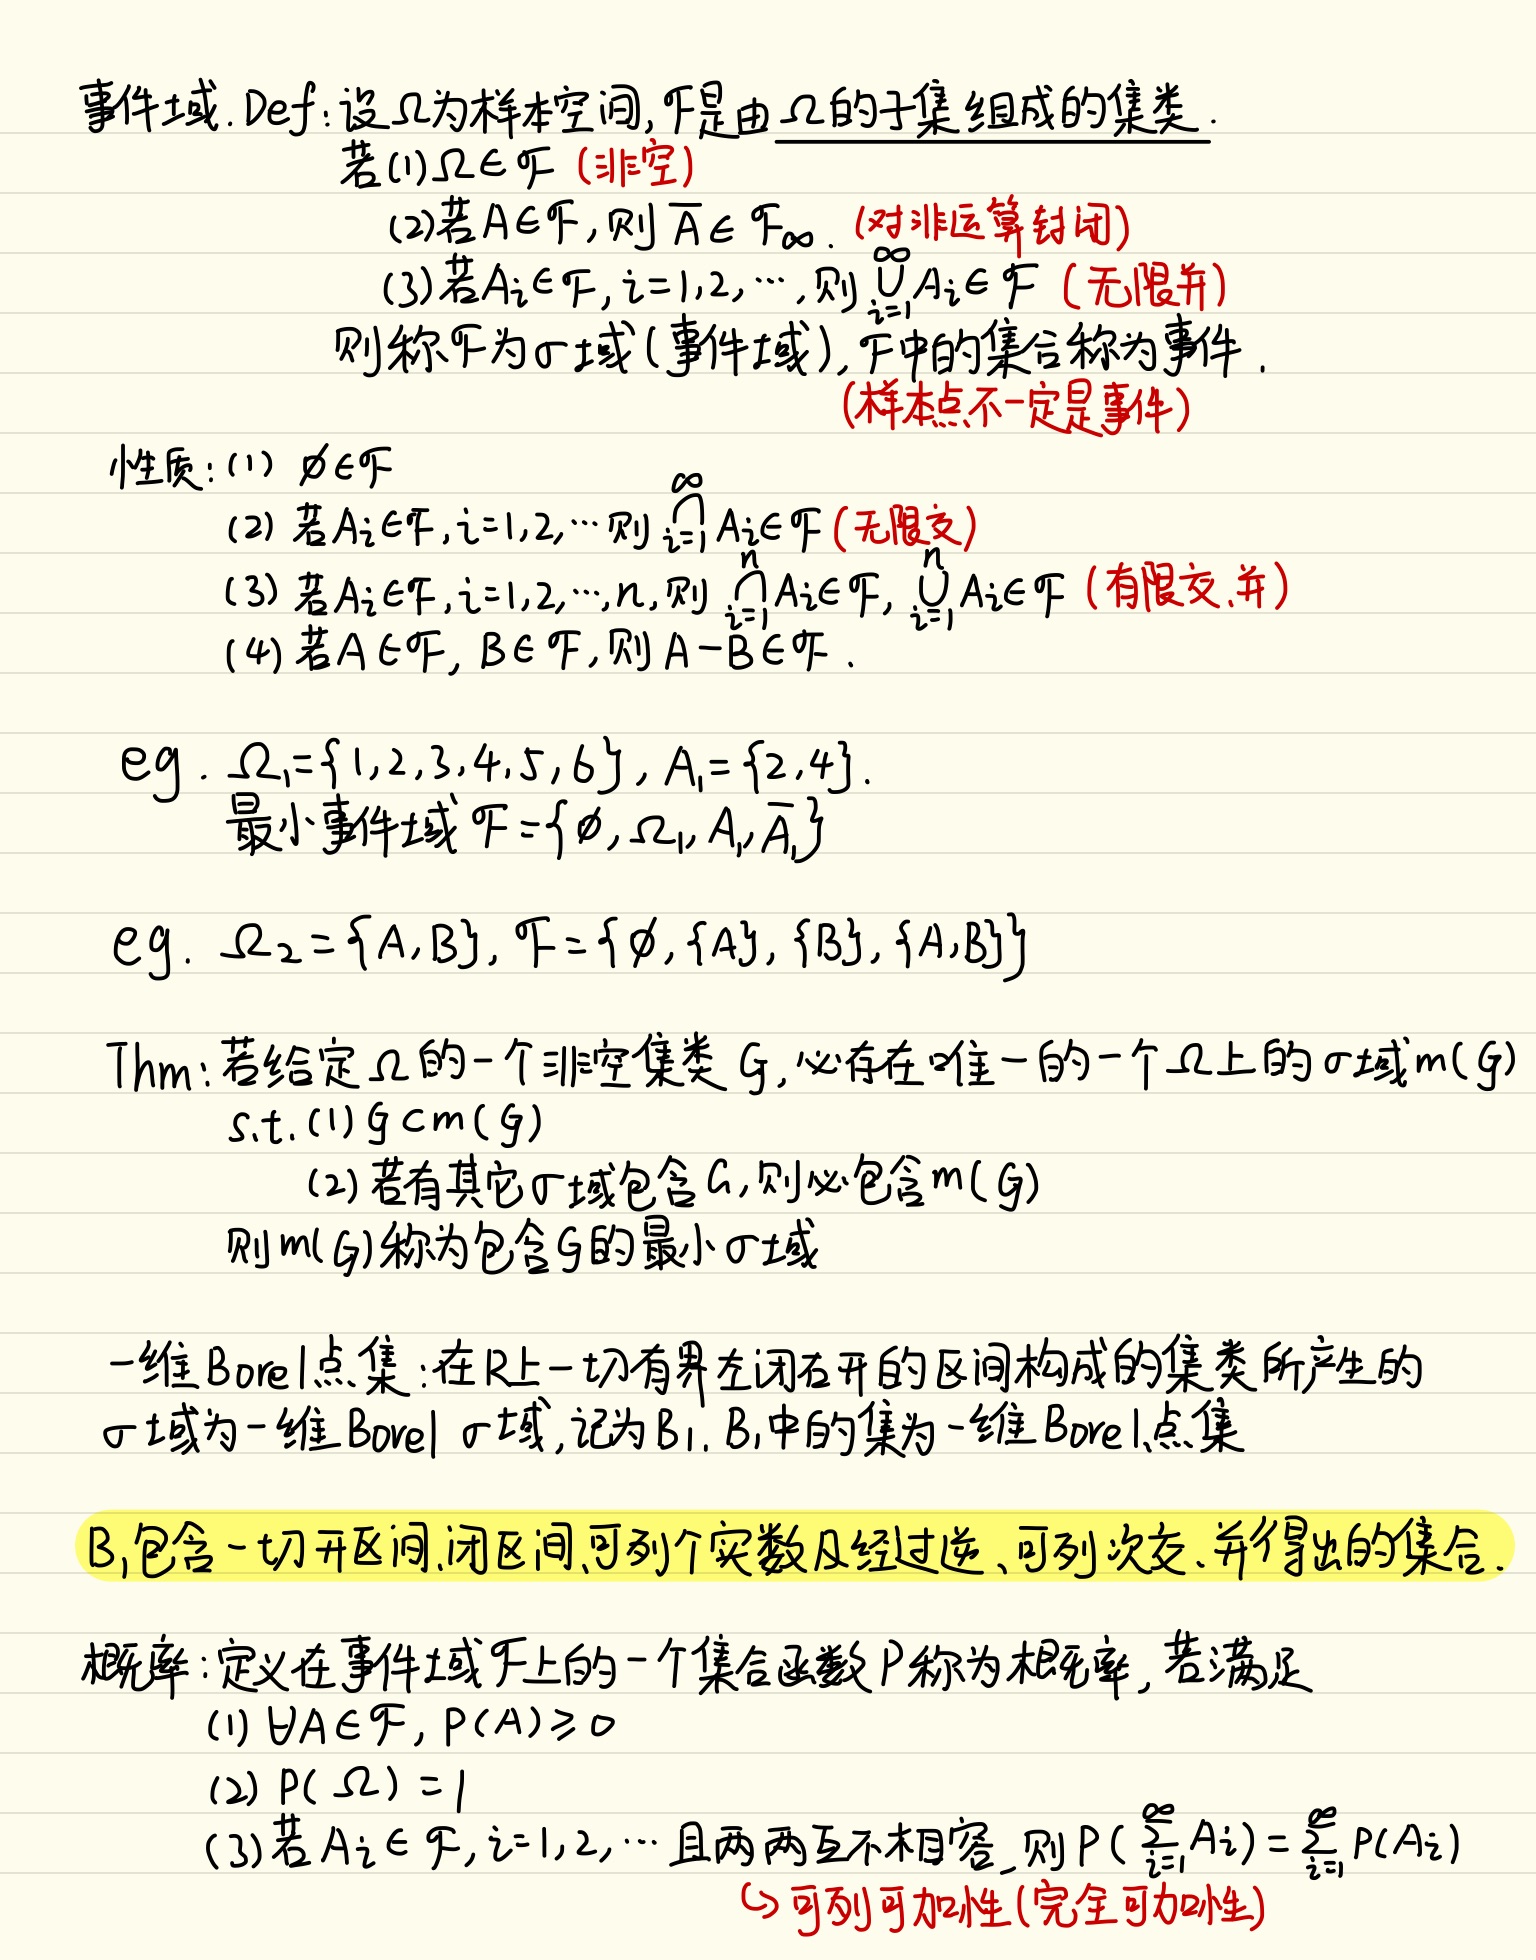 事件域. Def: 设Ω为样本空间, ℱ是由Ω的子集组成的集类.
若(1)Ω∈ℱ (非空)
(2)若A∈ℱ, 则 A̅∈ℱ. (对非运算封闭)
(3)若Aᵢ∈ℱ, i=1,2,…, 则 ⋃_{i=1}^{∞} Aᵢ∈ℱ (无限并)
则称ℱ为σ域(事件域), ℱ中的集合称为事件.
(样本点不一定是事件)
性质: (1) ∅∈ℱ
(2) 若Aᵢ∈ℱ, i=1,2,…则 ⋂_{i=1}^{∞} Aᵢ∈ℱ (无限交)
(3) 若Aᵢ∈ℱ, i=1,2,…,n, 则 ⋂_{i=1}^{n} Aᵢ∈ℱ, ⋃_{i=1}^{n} Aᵢ∈ℱ (有限交、并)
(4) 若A∈ℱ, B∈ℱ, 则A-B∈ℱ.
eg. Ω₁={1,2,3,4,5,6}, A₁={2,4}.
最小事件域 ℱ={∅, Ω₁, A₁, A̅₁}
eg. Ω₂={A,B}, ℱ={∅, {A}, {B}, {A,B}}
Thm: 若给定Ω的一个非空集类 G, 必存在唯一的一个Ω上的σ域m(G)
s.t. (1) G⊂m(G)
(2) 若有其它σ域包含G, 则必包含m(G)
则m(G)称为包含G的最小σ域
一维Borel点集: 在R上一切有界左闭右开的区间构成的集类所产生的
σ域为一维Borel σ域, 记为B₁. B₁中的集为一维Borel点集
B₁包含一切开区间、闭区间、可列个实数及经过逆、可列次交、并得出的集合.
概率: 定义在事件域ℱ上的一个集合函数P称为概率, 若满足
(1) ∀A∈ℱ, P(A)≥0
(2) P(Ω)=1
(3) 若Aᵢ∈ℱ, i=1,2,…且两两互不相容, 则P(∑_{i=1}^{∞} Aᵢ)=∑_{i=1}^{∞} P(Aᵢ)
↪可列可加性(完全可加性)